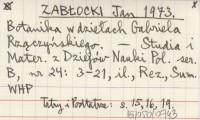 ZABŁOCKI Jan 1973.
Botanika w dziełach Gabriela
Rzączyńskiego. — Studia i
Mater. z Dziejów Nauki Pol. ser.
B, nr 24: 3-21, il., Rez., Sum.
WHP
Tatry i Podtatrze: s. 15, 16, 19.